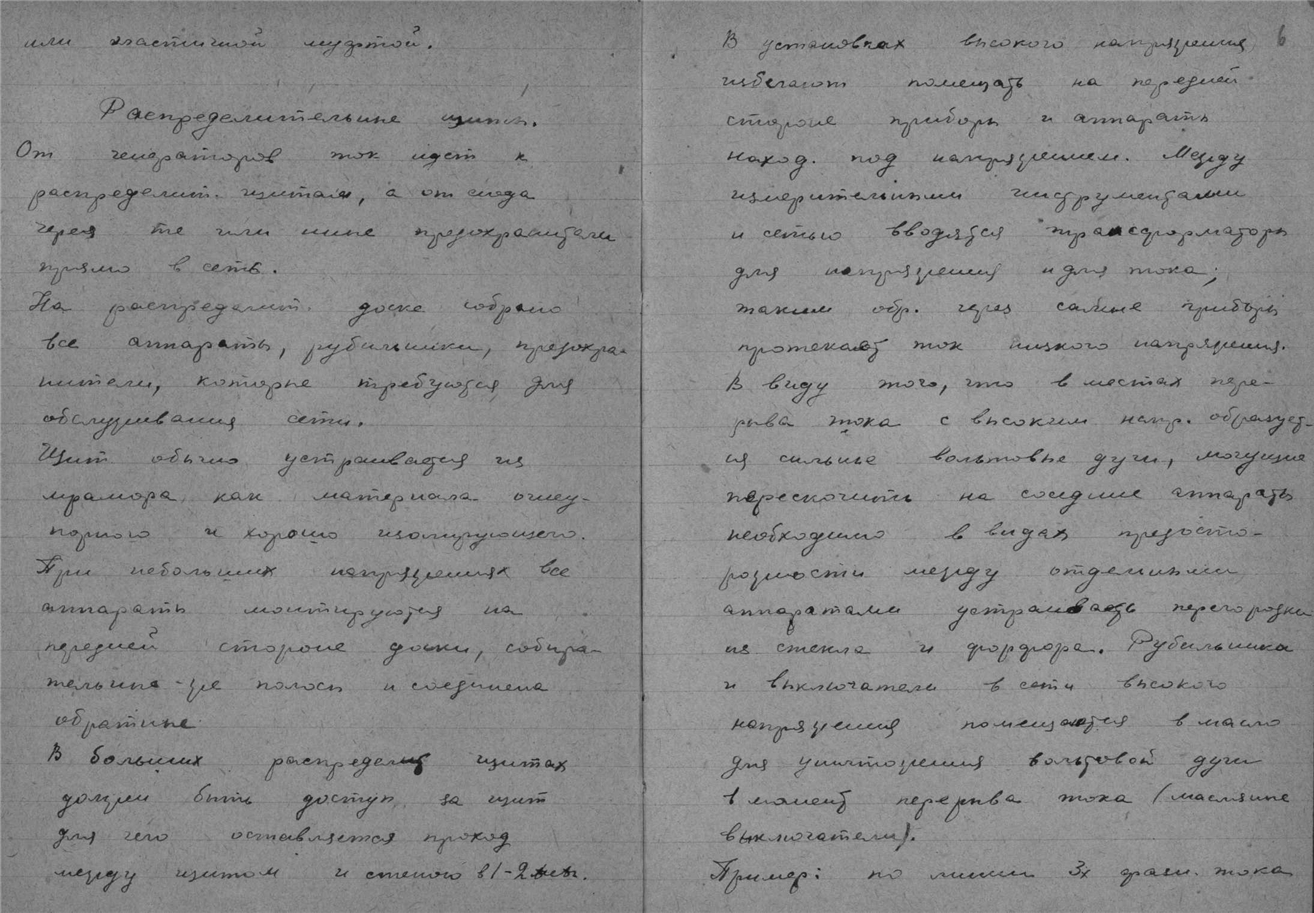 или эластичной муфтой.
Распределительные щиты.
От генераторов ток идет к
распределит. щитам, а от сюда
через те или иные предохранители
прямо в сеть.
На распределит. доске собрано
все аппараты, рубильники, предохра-
нители, которые требуются для
обслуживания сети.
Щит обычно устраивается из
мрамора как материала огнеу-
порного и хорошо изолирующего.
При небольших напряжениях все
аппараты монтируются на
передней стороне доски, собира-
тельные-же полосы и соединена
обратные
В больших распределит щитах
должен быть доступ за щит
для чего оставляется проход
между щитом и стеною в 1-2
6
В установках высокого напряжения
избегают помещать на передней
стороне приборы и аппараты
наход. под напряжением. Между
измерительными инструментами
и сетью вводятся трансформаторы
для напряжения и для тока;
таким обр. через самые приборы
протекает ток низкого напряжения.
В виду того, что в местах пере-
рыва тока с высоким напр. образует-
ся сильные вольтовы дуги, могущие
перескочить на соседние аппараты
необходимо в видах предосто-
рожности между отдельными
аппаратами устраивать перегородки
из стекла и фарфора. Рубильника
и выключатели в сети высокого
напряжения помещаются в масло
для уничтожения вольтовой дуги
в момент перерыва тока (масляные
выключатели).
Пример: по линии 3х фазн. тока